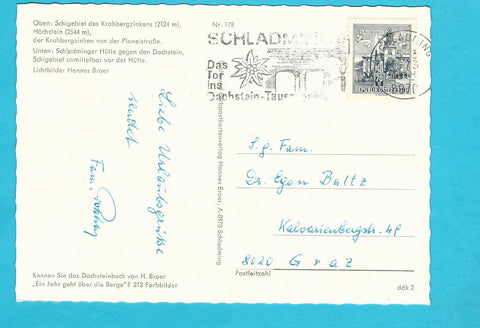 Oben: Schigebiet des Krahbergzinkens (2124 m),
Höchstein (2544 m),
der Krahbergzinken von der Planeistraße.
Unten: Schladminger Hütte gegen den Dachstein,
Schigebiet unmittelbar vor der Hütte.
Lichtbilder Hannes Broer
Nr. 178
SCHLADMING
Das
Tor
ins
Dachstein-Tauern
Liebe Urlaubsgrüße
sendet
Fam.
Postkartenverlag Hannes Broer, A-8970 Schladming
S.g. Fam.
Dr. Egon Baltz
Kalvarienbergstr. 48
8020 Graz
Postleitzahl
Kennen Sie das Dachsteinbuch von H. Broer
„Ein Jahr geht über die Berge"? 213 Farbbilder
ddk 2